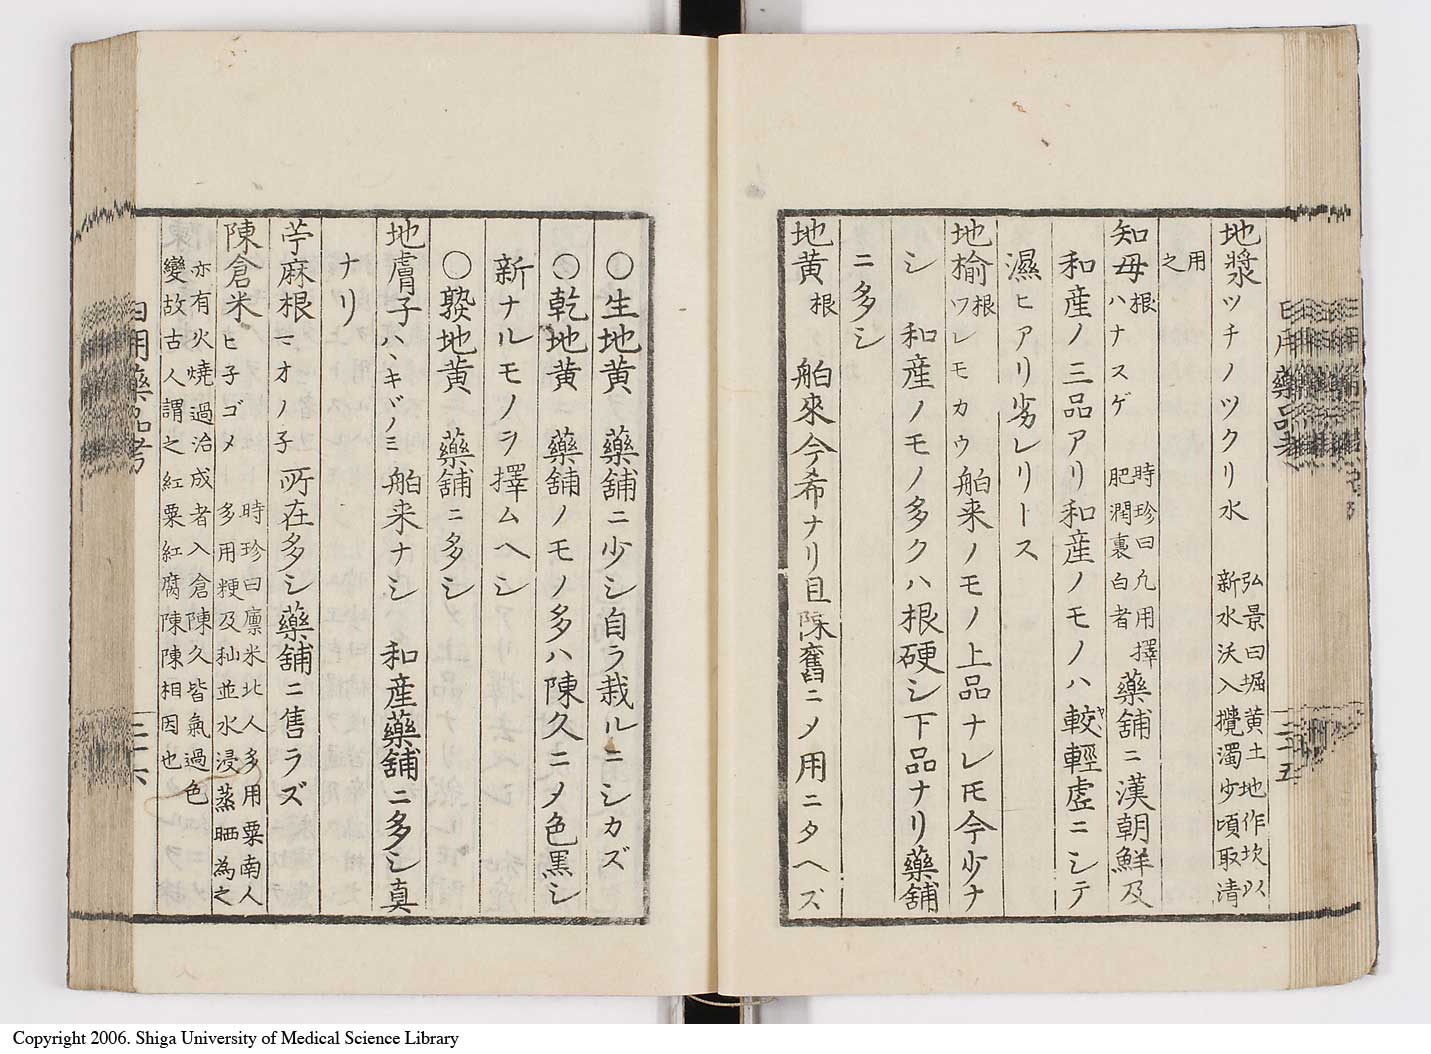 地漿 ツチノツクリ水 弘景曰堀黄土地作坎以
新水沃入攪濁少頃取清
用
之
知母 根 ハナスゲ 時珍曰凢用擇
肥潤裏白者 藥舗ニ漢朝鮮及
和産ノ三品アリ和産ノモノハ較輕虚ニシテ
濕ヒアリ劣レリトス
地榆 根 ワレモカウ 舶来ノモノ上品ナレ𪜈今少ナ
シ 和産ノモノ多クハ根硬シ下品ナリ藥舗
ニ多シ
地黄 根 舶來今希ナリ且陳舊ニメ用ニタヘズ
日用藥品考
二十五
〇生地黄 藥舗ニ少シ自ラ栽ルニシカズ
〇乾地黄 藥舗ノモノ多ハ陳久ニメ色黒シ
新ナルモノヲ擇ムヘシ
〇熟地黄 藥舗ニ多シ
地膚子 ハヽキギノミ 舶来ナシ 和産藥舗ニ多シ真
ナリ
苧麻根 マオノ子 所在多シ藥舗ニ售ラズ
陳倉米 ヒ子ゴメ 時珍曰廪米北人多用粟南人
多用粳及秈並水浸蒸晒為之
亦有火燒過治成者入倉陳久皆氣過色
變故古人謂之紅粟紅腐陳陳相因也
日用藥品考
二十六
Copyright 2006. Shiga University of Medical Science Library